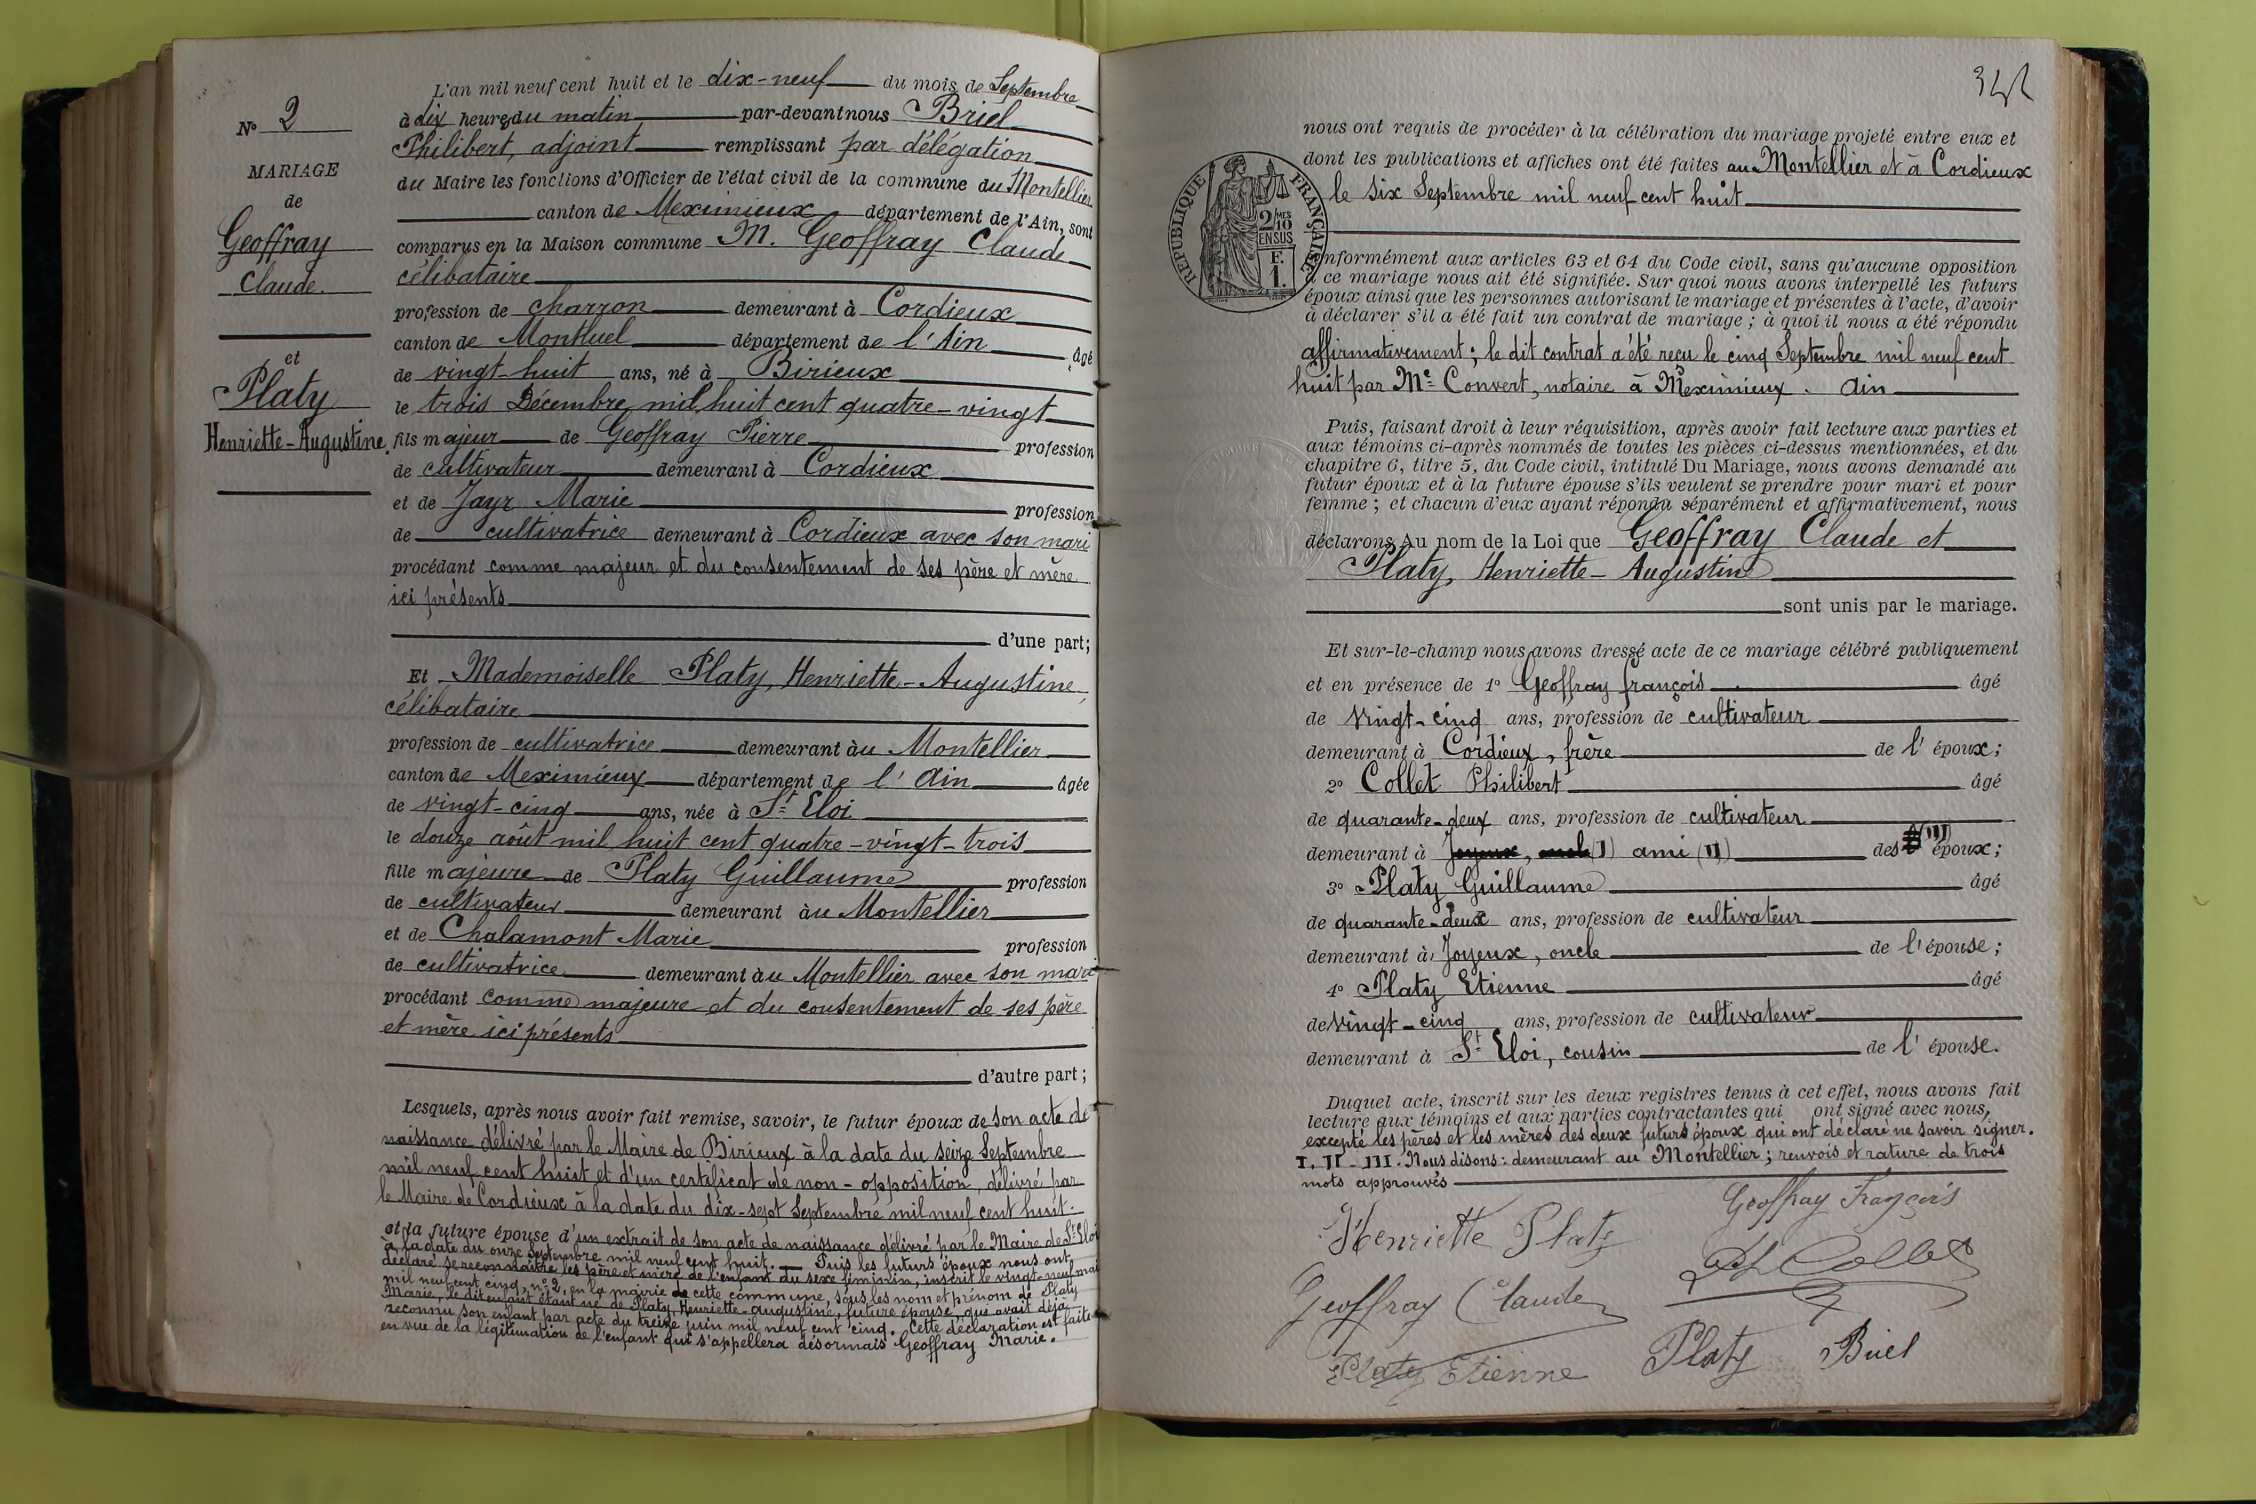 L'an mil neuf cent huit et le dix-neuf du mois de Septembre
à dix heures du matin par-devant nous Briel
Philibert, adjoint remplissant par délégation
du Maire les fonctions d'Officier de l'état civil de la commune du Montellier
canton de Meximieux département de l'Ain, sont
comparus en la Maison commune M. Geoffray Claude
célibataire
profession de charron demeurant à Cordieux
canton de Montluel département de l'Ain âgé
de vingt-huit ans, né à Birieux
le trois Décembre mil huit cent quatre-vingt
fils majeur de Geoffray Pierre profession
de cultivateur demeurant à Cordieux
et de Jayr Marie profession
de cultivatrice demeurant à Cordieux avec son mari
procédant comme majeur et du consentement de ses père et mère
ici présents
d'une part;
Et Mademoiselle Platy, Henriette-Augustine,
célibataire
profession de cultivatrice demeurant àu Montellier
canton de Meximieux département de l'Ain âgée
de vingt-cinq ans, née à St Eloi
le douze août mil huit cent quatre-vingt-trois
fille majeure de Platy Guillaume profession
de cultivateur demeurant àu Montellier
et de Chalamont Marie profession
de cultivatrice demeurant àu Montellier avec son mari
procédant comme majeure et du consentement de ses père
et mère ici présents
d'autre part;
Lesquels, après nous avoir fait remise, savoir, le futur époux de son acte de
naissance délivré par le Maire de Birieux à la date du seize Septembre
mil neuf cent huit et d'un certificat de non-opposition, délivré par
le Maire de Cordieux à la date du dix-sept Septembre mil neuf cent huit.
et la future épouse d'un extrait de son acte de naissance délivré par le Maire de St Eloi
à la date du onze Septembre mil neuf cent huit. — Puis les futurs époux nous ont
déclaré se reconnaître les père et mère de l'enfant du sexe féminin, inscrit le vingt-neuf mai
mil neuf cent cinq, no 2, en la mairie de cette commune, sous les nom et prénom de Platy
Marie, le dit enfant étant né de Platy, Henriette-Augustine, future épouse, qui avait déjà
reconnu son enfant par acte du treize juin mil neuf cent cinq. Cette déclaration est faite
en vue de la légitimation de l'enfant qui s'appellera désormais Geoffray Marie.
No 2
MARIAGE
de
Geoffray
Claude.
et
Platy
Henriette-Augustine.
342
nous ont requis de procéder à la célébration du mariage projeté entre eux et
dont les publications et affiches ont été faites au Montellier et à Cordieux
le six Septembre mil neuf cent huit
RÉPUBLIQUE FRANÇAISE
2/10 MES
EN SUS
F.
1.
conformément aux articles 63 et 64 du Code civil, sans qu'aucune opposition
à ce mariage nous ait été signifiée. Sur quoi nous avons interpellé les futurs
époux ainsi que les personnes autorisant le mariage et présentes à l'acte, d'avoir
à déclarer s'il a été fait un contrat de mariage ; à quoi il nous a été répondu
affirmativement ; le dit contrat a été reçu le cinq Septembre mil neuf cent
huit par Me Convert, notaire à Meximieux. Ain
Puis, faisant droit à leur réquisition, après avoir fait lecture aux parties et
aux témoins ci-après nommés de toutes les pièces ci-dessus mentionnées, et du
chapitre 6, titre 5, du Code civil, intitulé Du Mariage, nous avons demandé au
futur époux et à la future épouse s'ils veulent se prendre pour mari et pour
femme ; et chacun d'eux ayant répondu séparément et affirmativement, nous
déclarons Au nom de la Loi que Geoffray Claude et
Platy, Henriette-Augustine
sont unis par le mariage.
Et sur-le-champ nous avons dressé acte de ce mariage célébré publiquement
et en présence de 1o Geoffray françois âgé
de vingt-cinq ans, profession de cultivateur
demeurant à Cordieux, frère de l'époux;
2o Collet Philibert âgé
de quarante-deux ans, profession de cultivateur
demeurant à Joyeux, oncle (I) ami (II) des (III) époux;
3o Platy Guillaume âgé
de quarante-deux ans, profession de cultivateur
demeurant à Joyeux, oncle de l'épouse;
4o Platy Etienne âgé
de vingt-cinq ans, profession de cultivateur
demeurant à St Eloi, cousin de l'épouse.
Duquel acte, inscrit sur les deux registres tenus à cet effet, nous avons fait
lecture aux témoins et aux parties contractantes qui ont signé avec nous,
excepté les pères et les mères des deux futurs époux qui ont déclaré ne savoir signer.
I. II - III. Nous disons : demeurant au Montellier ; renvois et rature de trois
mots approuvés
Henriette Platy
Geoffray François
Ph Collet
Geoffray Claude
Platy Etienne
Platy
Briel